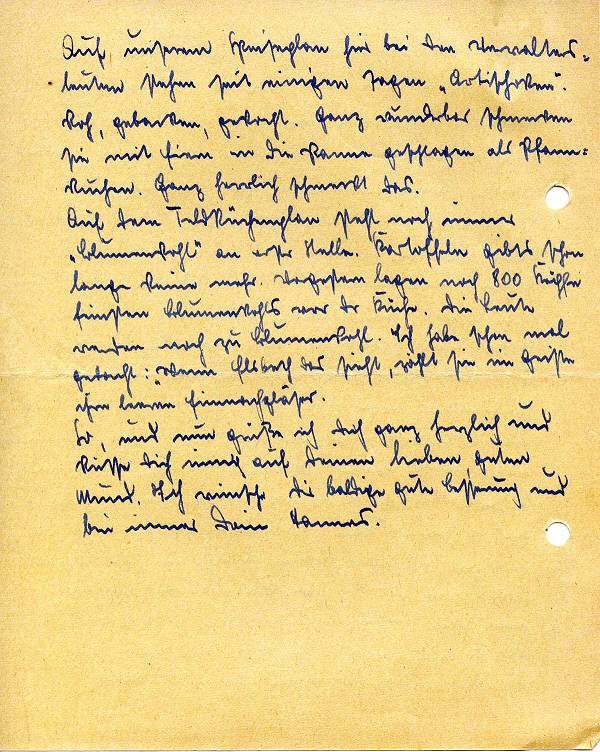 Auf unserem Speiseplan hier bei den Verwalters-
leuten stehen seit einigen Tagen „Artischoken“.
Roh, gebacken, gekocht. Ganz wunderbar schmecken
sie mit Eiern in die Pfanne geschlagen als Pfann-
kuchen. Ganz herrlich schmeckt das.
Auf dem Feldküchenplan steht noch immer
„Blumenkohl“ an erster Stelle. Kartoffeln gibts schon
lange keine mehr. Vorgestern lagen noch 800 Köpfe
feinsten Blumenkohls vor der Küche. Die Leute
werden noch zu Blumenkohl. Ich habe schon mal
gedacht: „Wenn Elsbeth das sieht, zählt sie im Geiste
ihre leeren Einmachgläser.
So, und nun grüße ich Dich ganz herzlich und
küsse Dich innig auf Deinen lieben, guten
Mund. Ich wünsche Dir baldige gute Besserung und
bin immer Dein Hannes.